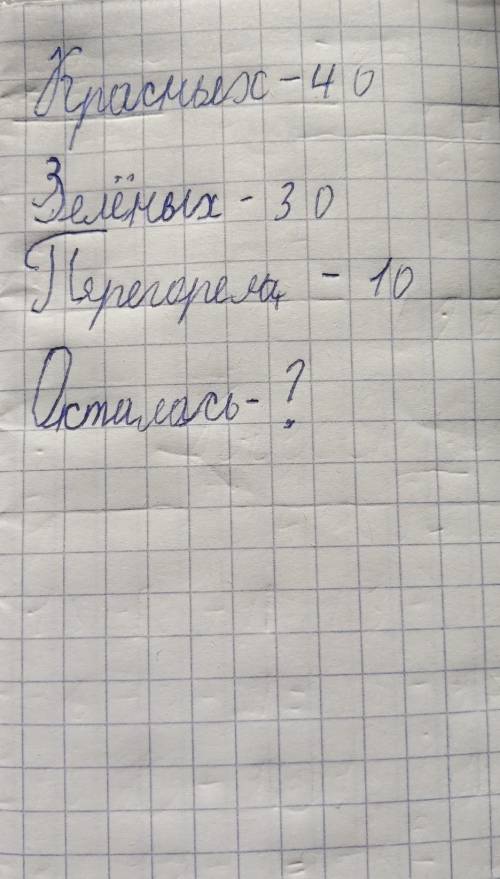 Красных - 40
Зелёных - 30
Пярегорела - 10
Осталась - ?